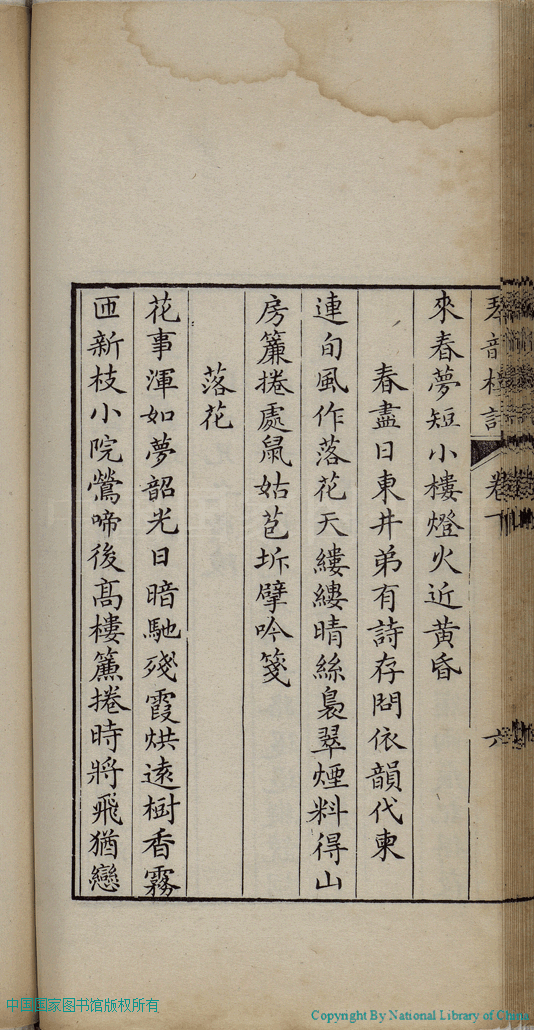 來春夢短小樓燈火近黃昏
春盡日東井弟有詩存問依韻代柬
連旬風作落花天縷縷晴絲裊翠煙料得山
房簾捲處鼠姑苞坼擘吟箋
落花
花事渾如夢韶光日暗馳殘霞烘遠樹香霧
匝新枝小院鶯啼後高樓簾捲時將飛猶戀
中国国家图书馆版权所有
Copyright By National Library of China